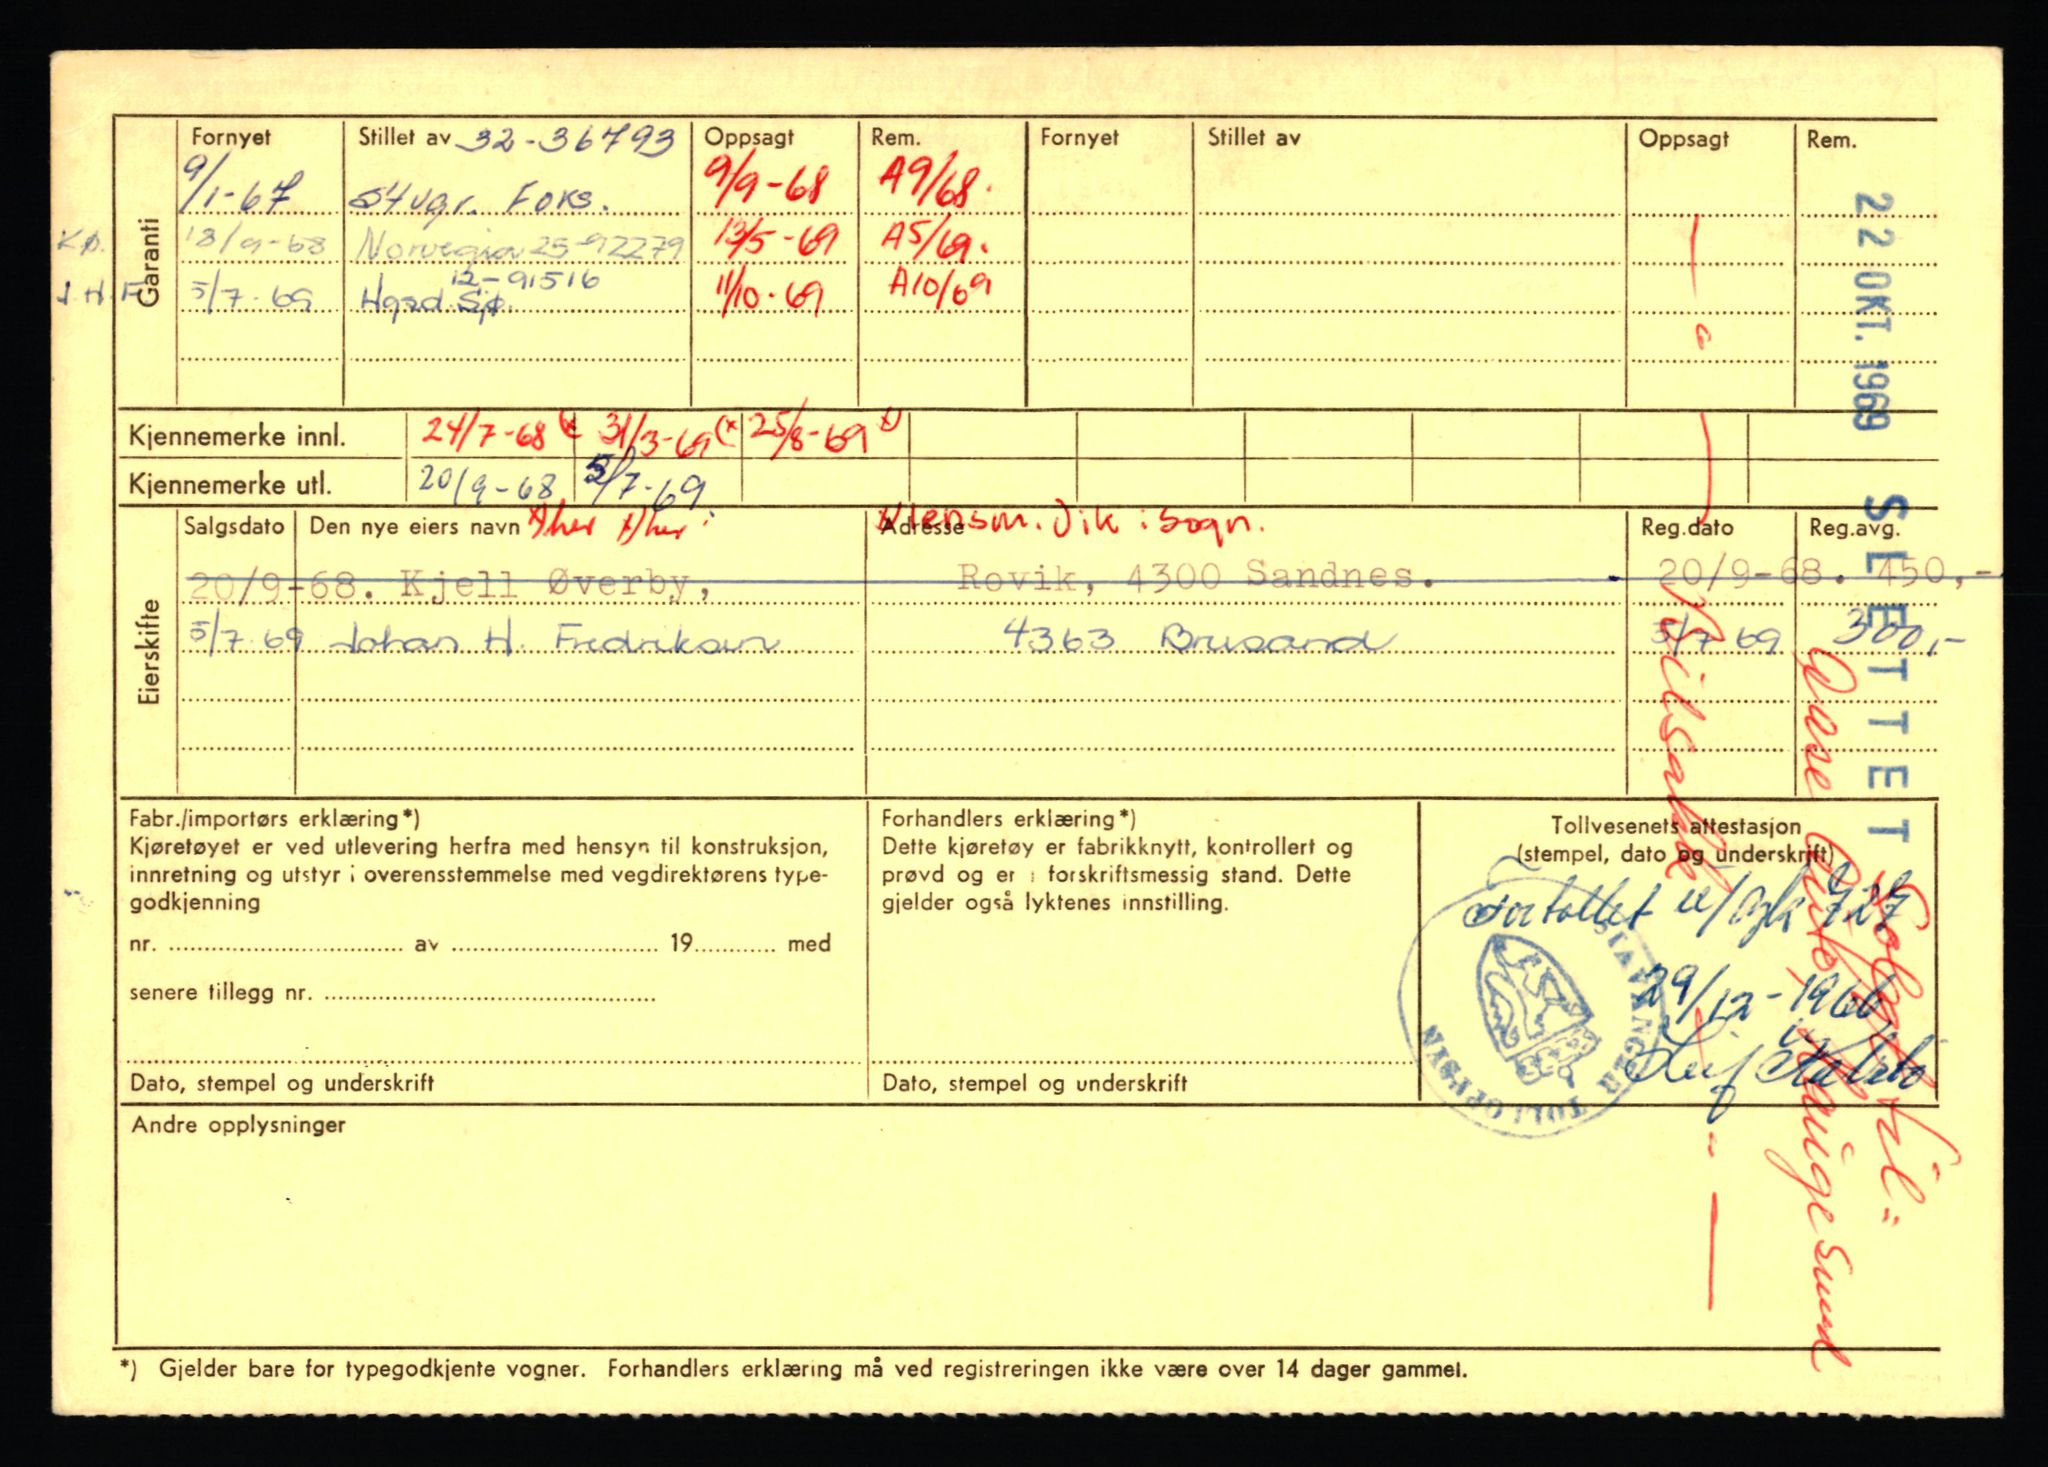 Garanti
Fornyet Stillet av 32-36793 Oppsagt Rem. Fornyet Stillet av Oppsagt Rem.
9/1-67 Foks. 9/9-68 A9/68.
KØ. 18/9-68 Norvegia 25-92279 13/5-69 A5/69.
12-91516
J.H.F 5/7-69 11/10-69 A10/69
22 OKT. 1969
SLETTET
Kjennemerke innl. 24/7-68 (x 31/3-69 (x 25/8-69 x)
Kjennemerke utl. 20/9-68 5/7-69
Eierskifte
Salgsdato Den nye eiers navn x) her x) her: Adresse x) lensm. Vik i Sogn. Reg.dato Reg.avg.
20/9-68. Kjell Øverby, Rovik, 4300 Sandnes. 20/9-68. 450,-
5/7 69 Johan H. Fredriksen 4363 Brusand 5/7 69 300,-
Vilsarkk
Solgt til:
Haugesund
Fabr./importørs erklæring*)
Kjøretøyet er ved utlevering herfra med hensyn til konstruksjon,
innretning og utstyr i overensstemmelse med vegdirektørens type-
godkjenning
nr. av 19 med
senere tillegg nr.
Dato, stempel og underskrift
Forhandlers erklæring*)
Dette kjøretøy er fabrikknytt, kontrollert og
prøvd og er i forskriftsmessig stand. Dette
gjelder også lyktenes innstilling.
Dato, stempel og underskrift
Tollvesenets attestasjon
(stempel, dato og underskrift)
Fortollet 727
29/12-1966
Leif
STAVANGER TOLLOPPSYN
Andre opplysninger
*) Gjelder bare for typegodkjente vogner. Forhandlers erklæring må ved registreringen ikke være over 14 dager gammel.